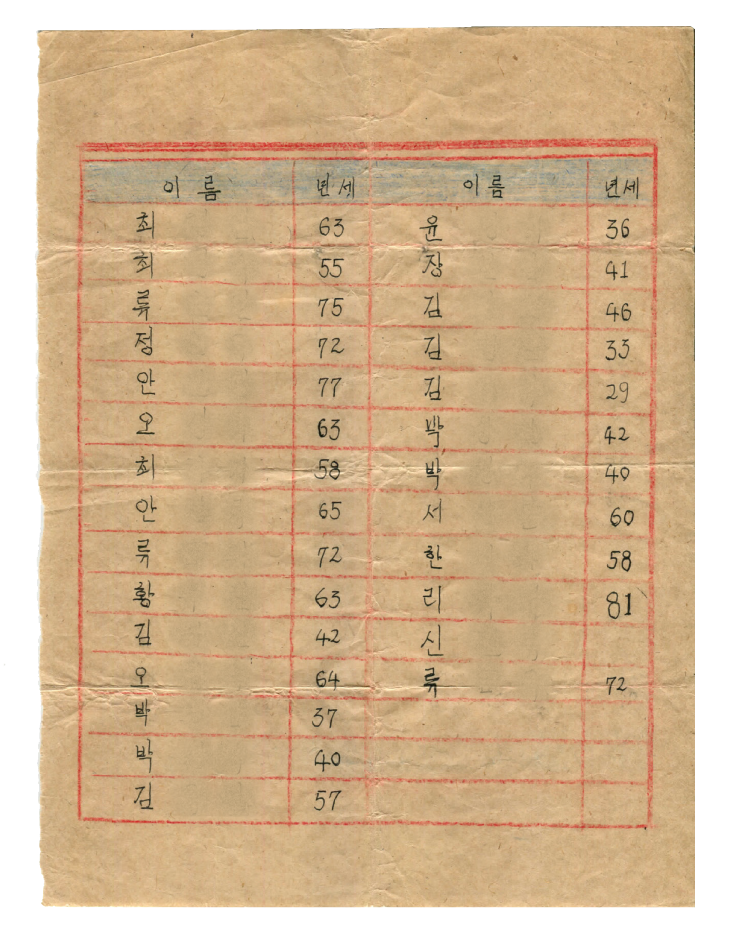 이름 년세 이름 년세
최 63 윤 36
최 55 장 41
류 75 김 46
정 72 김 33
안 77 김 29
오 63 박 42
최 58 박 40
안 65 서 60
류 72 한 58
황 63 리 81
김 42 신
오 64 류 72
박 37
박 40
김 57